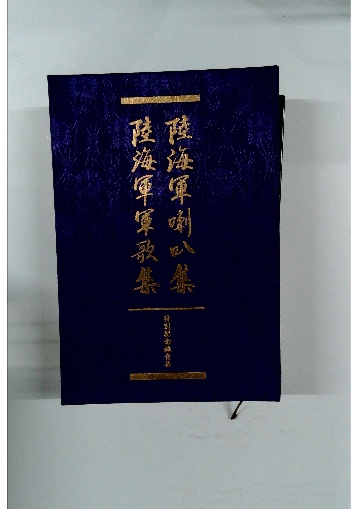 陸海軍喇叭集
陸海軍軍歌集